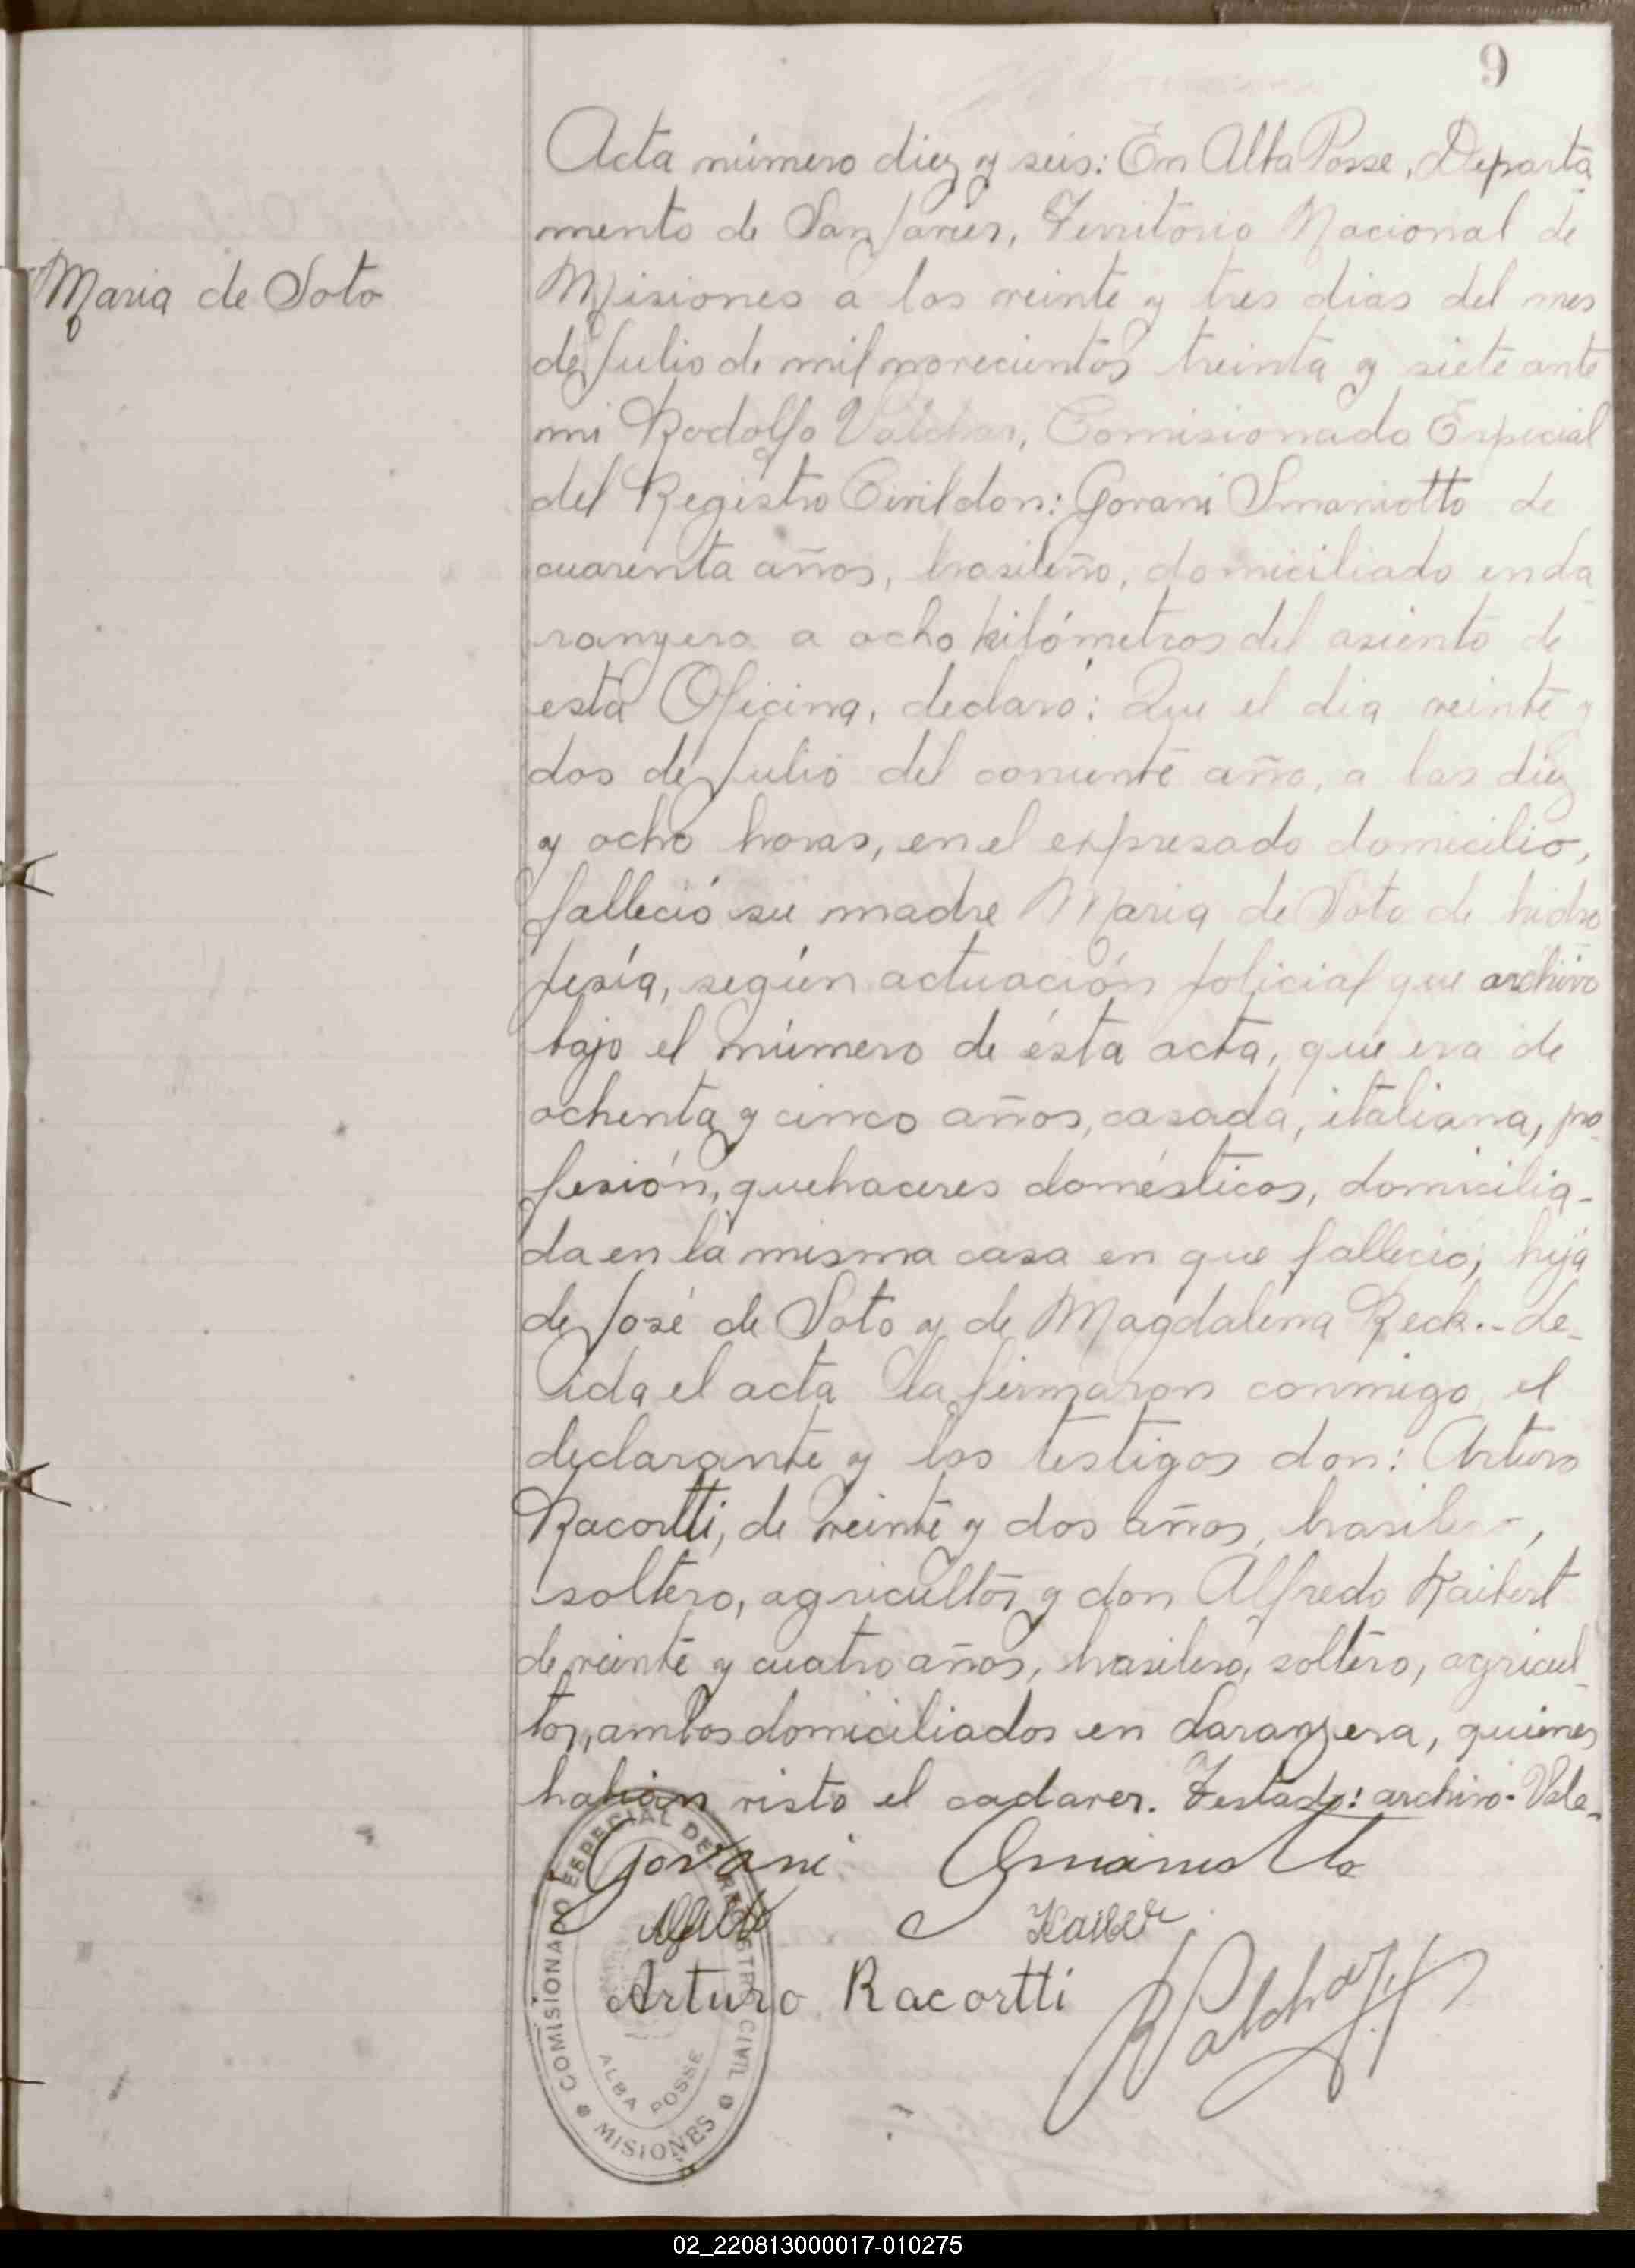 9
Acta número diez y seis: En Alba Posse, Departa-
mento de San Javier, Territorio Nacional de
Maria de Soto
Misiones a los veinte y tres dias del mes
de Julio de mil novecientos treinta y siete ante
mi Rodolfo Valchar, Comisionado Especial
del Registro Civil don: Govani Smaniotto de
cuarenta años, brasileño, domiciliado en La-
ranyera a ocho kilómetros del asiento de
esta Oficina, declaró: Que el dia veinte y
dos de Julio del corriente año, a las diez
y ocho horas, en el expresado domicilio,
falleció su madre Maria de Soto de hidro
pesía, según actuación policial que archivo
bajo el número de ésta acta, que era de
ochenta y cinco años, casada, italiana, pro
fesión, quehaceres domésticos, domicilia-
da en la misma casa en que fallecio; hija
de José de Soto y de Magdalena Reck.- Le-
ida el acta la firmaron conmigo el
declarante y los testigos don: Arturo
Racortti, de veinte y dos años, brasilero,
soltero, agricultor y don Alfredo Kaibert
de veinte y cuatro años, brasilero, soltero, agricul-
tor, ambos domiciliados en Laranyera, quienes
habian visto el cadaver. Testado: archivo. Vale.
Govani Smaniotto
Kaiber
Arturo Racortti
COMISIONADO ESPECIAL DE REGISTRO CIVIL
ALBA POSSE
MISIONES
02_220813000017-010275